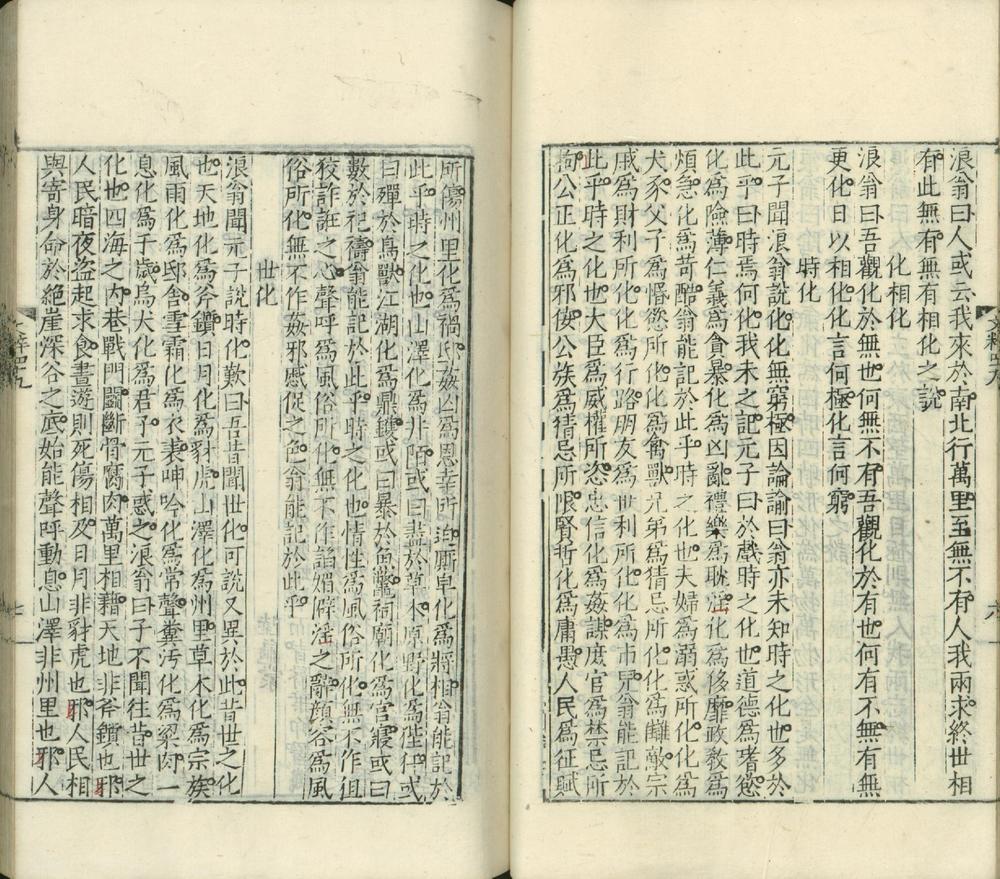 浪翁曰人或云我來於南北行萬里至無不有人我兩求終世相
有此無有無有相化之說
化相化
浪翁曰吾觀化於無也何無不有吾觀化於有也何有不無有無
更化日以相化化言何極化言何窮
時化
元子聞浪翁說化化無窮極因論諭曰翁亦未知時之化也多於
此乎曰時焉何化我未之記元子曰於戲時之化也道德爲嗜慾
化爲險薄仁義爲貪暴化爲凶亂禮樂爲耽淫化爲侈靡政教爲
煩急化爲苛酷翁能記於此乎時之化也夫婦爲溺惑所化化爲
犬豕父子爲惛慾所化化爲禽獸兄弟爲猜忌所化化爲讎敵宗
戚爲財利所化化爲行路朋友爲世利所化化爲市兒翁能記於
此乎時之化也大臣爲威權所恣忠信化爲姦謀庶官爲禁忌所
拘公正化爲邪佞公族爲猜忌所限賢哲化爲庸愚人民爲征賦
所傷州里化爲禍邸姦凶爲恩幸所迫厮皁化爲將相翁能記於
此乎時之化也山澤化爲井陌或曰盡於草木原野化爲狴犴或
曰殫於鳥獸江湖化爲鼎鑊或曰暴於魚鱉祠廟化爲宮寢或曰
數於祀禱翁能記於此乎時之化也情性爲風俗所化無不作狙
狡詐誑之心聲呼爲風俗所化無不作諂媚僻淫之辭顔容爲風
俗所化無不作姦邪蹙促之色翁能記於此乎
世化
浪翁聞元子說時化歎曰吾昔聞世化可說又異於此昔世之化
也天地化爲斧鑕日月化爲豺虎山澤化爲州里草木化爲宗族
風雨化爲邸舍雪霜化爲衣裘呻吟化爲常聲糞污化爲粱肉一
息化爲千歲烏犬化爲君子元子惑之浪翁曰子不聞往昔世之
化也四海之內巷戰門鬪斷骨腐肉萬里相藉天地非斧鑕也邪
人民暗夜盜起求食晝遊則死傷相及日月非豺虎也邪人民相
與寄身命於絕崖深谷之底始能聲呼動息山澤非州里也邪人